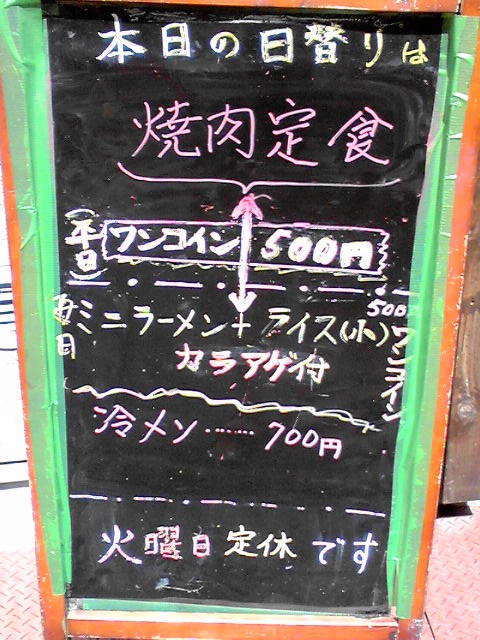 本日の日替りは
焼肉定食
(平日) ワンコイン 500円
毎日 ミニラーメン+ライス(小) 500円 ワンコイン
カラアゲ付
冷メン……700円
火曜日定休です